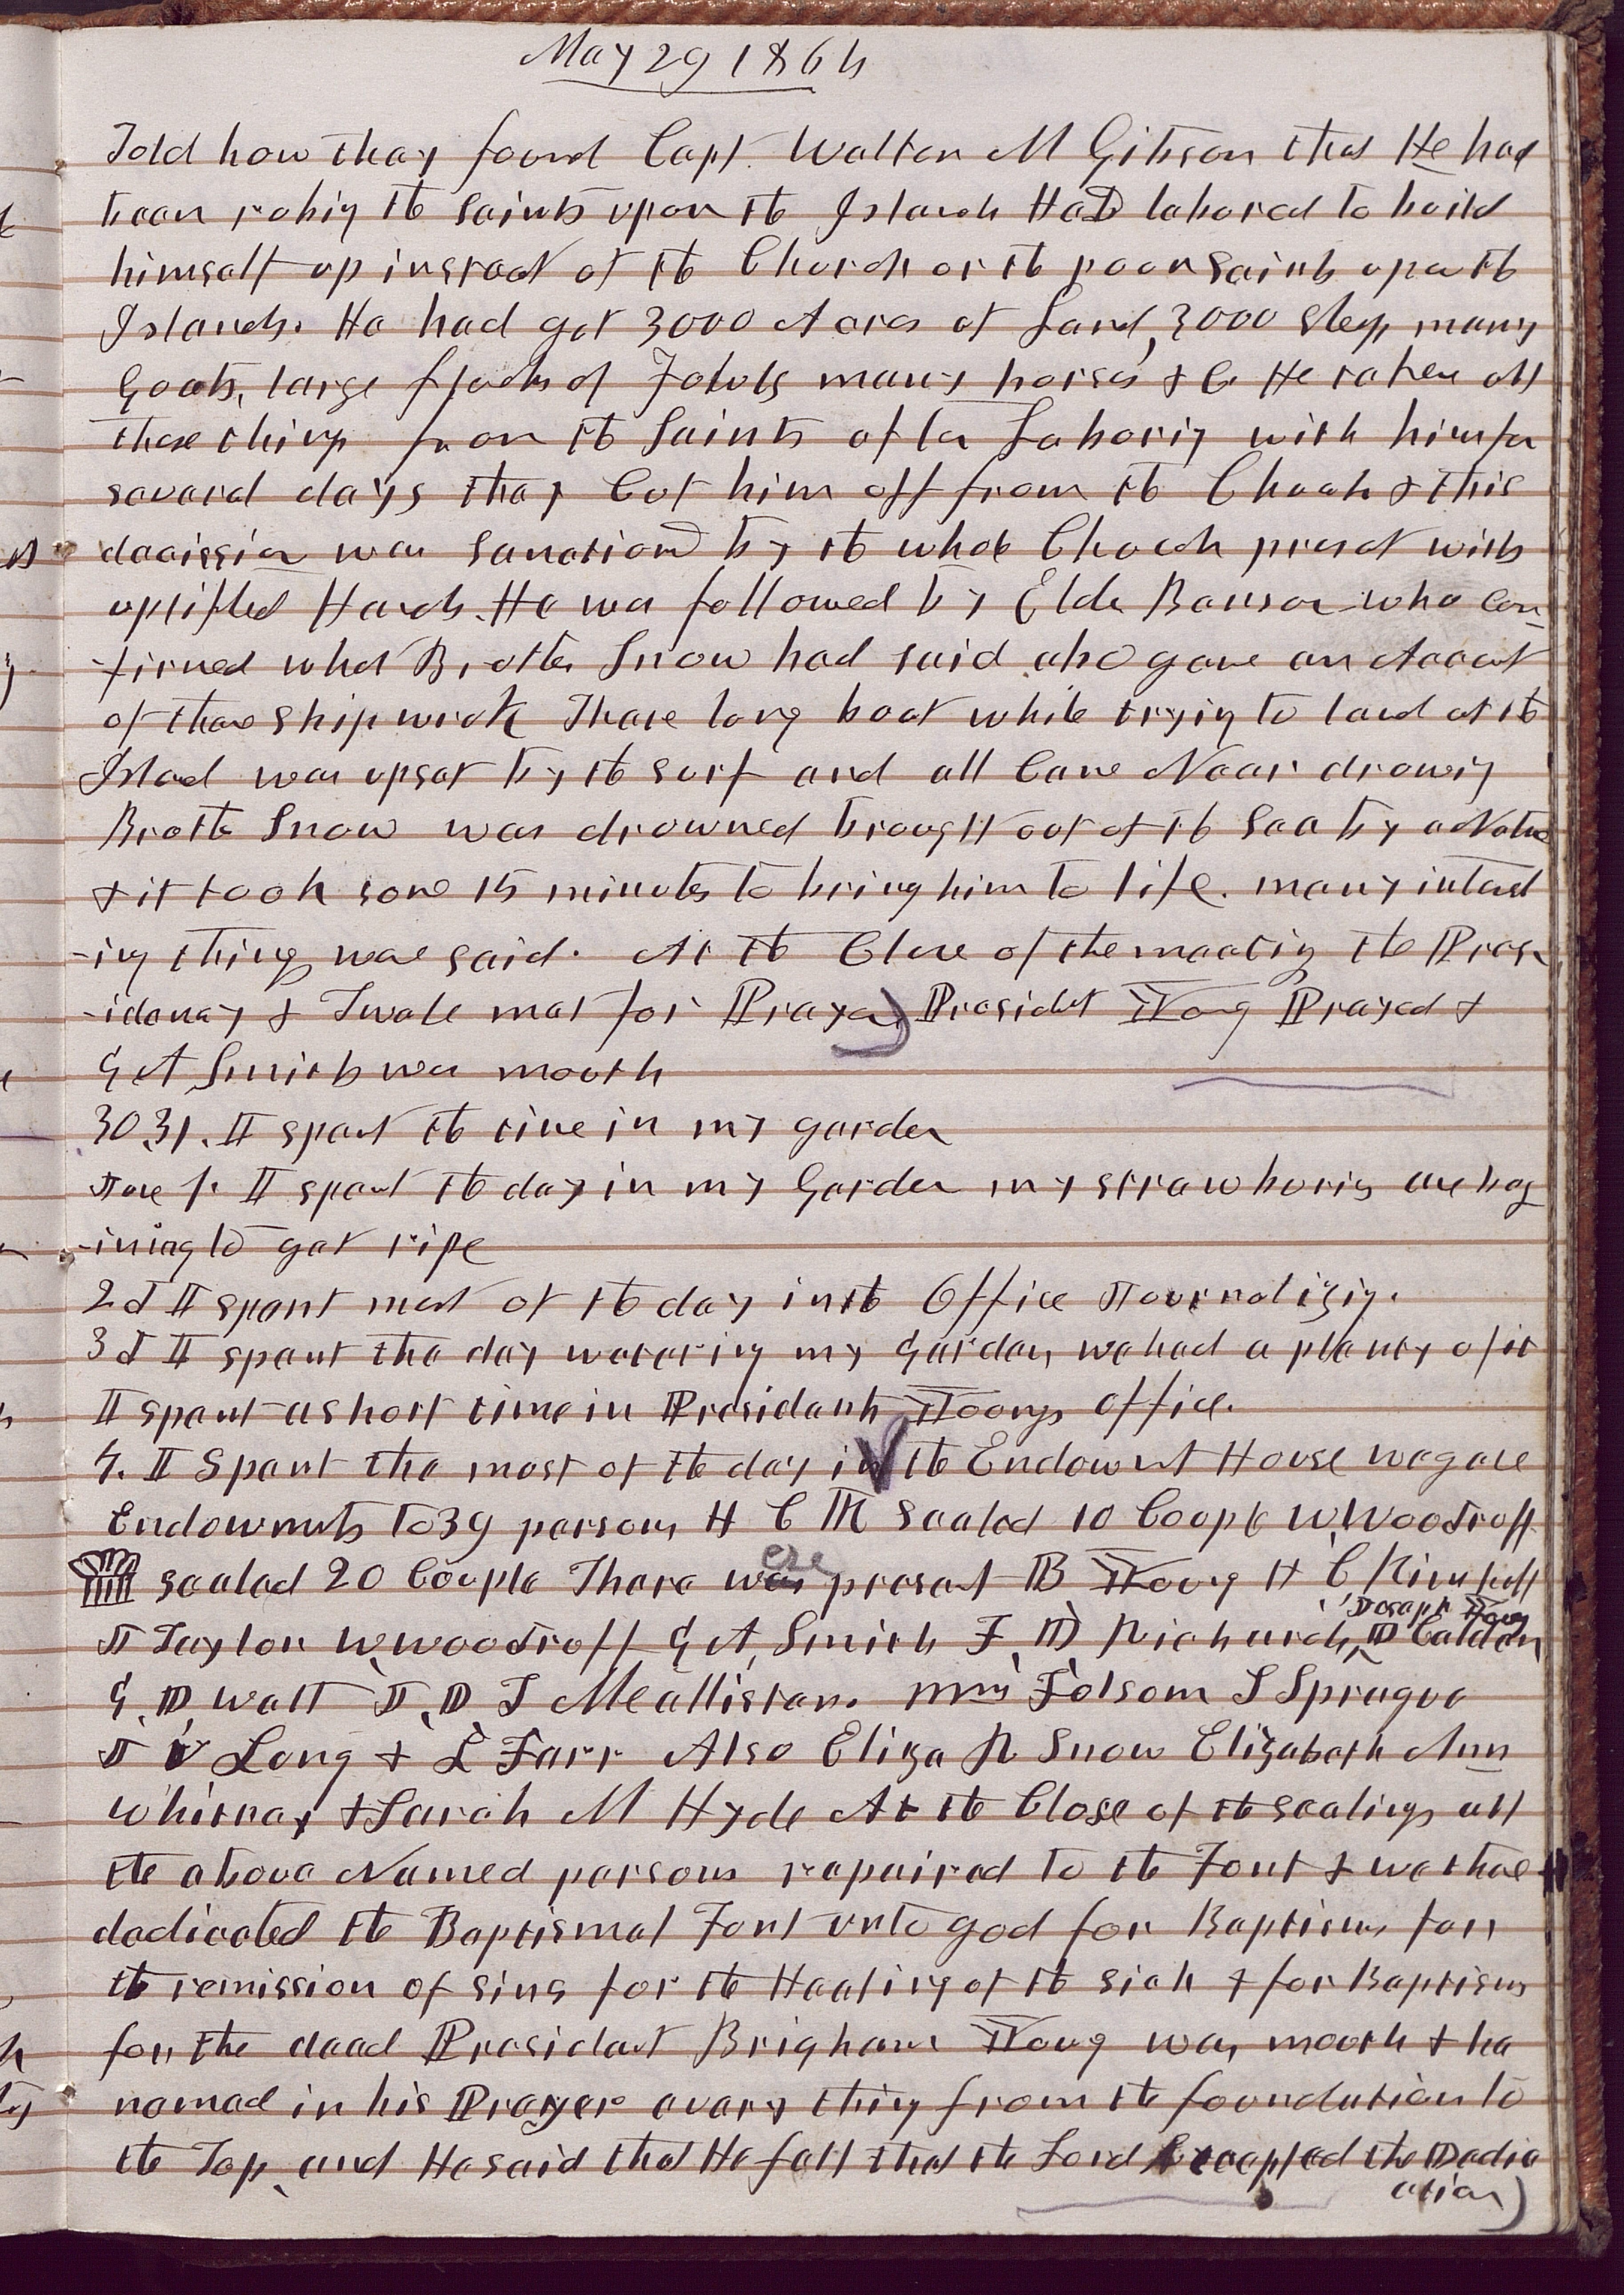 May 29 1864
Told how they found Capt. Walter M Gibson that He had
been robing the saints upon the Islands Had labored to build
himself up instead of the Church or the poor saints upon the
Islands. He had got 3000 Acres of Land, 3000 sheep, many
Goats, large flocks of Fowls many horses & C. He taken all
these things from the Saints after Laboring with him for
several days they Cut him off from the Church & this
decission was sanctiond by the whole Church presnt with
uplifted Hands. He was followed by Elder Benson who Con-
-firmed what Brother Snow had said also gave an Account
of there shipwreck There long boat while trying to land at the
Island was upset by the surf and all Came Near drowing
Brother Snow was drowned brought out of the Sea by a Native
& it took some 15 minutes to bring him to life. many interest
-ing things was said. At the Close of the meeting the Pres-
-idency & Twelve met for Prayer) President Young Prayed &
G A Smith was mouth
30 31. I spent the time in my garden
June 1. I spent the day in my Garden my strawberies are beg
-ining to get ripe
2d I spent most of the day in the Office Journalizing.
3d I spent the day watering my Garden, we had a plenty of it
I spent a short time in President Youngs office.
4. I Spent the most of the day in the Endowmt House we gave
Endowments to 39 persons H C K Sealed 10 Couple W. Woodruff
sealed 20 Couple There were present B Young H C Kimball
J Taylor W. Woodruff G A, Smith F, D, Richards, Joseph Young D Calder
G. D, Watt J, D, T McAllistar. Wm Folsom S Sprague
J V Long & L Farr Also Eliza R Snow Elizabeth Ann
Whitney & Sarah M Hyde At the Close of the sealings all
the above Named persons repaired to the Font & we there
dedicated the Baptismal Font unto god for Baptism for
the remission of sins for the Healing of the sick & for Baptism
for the dead President Brigham Young was mouth & he
named in his Prayer every thing from the foundation to
the Top, and He said that He felt that the Lord Accepted the Dedic
ation)